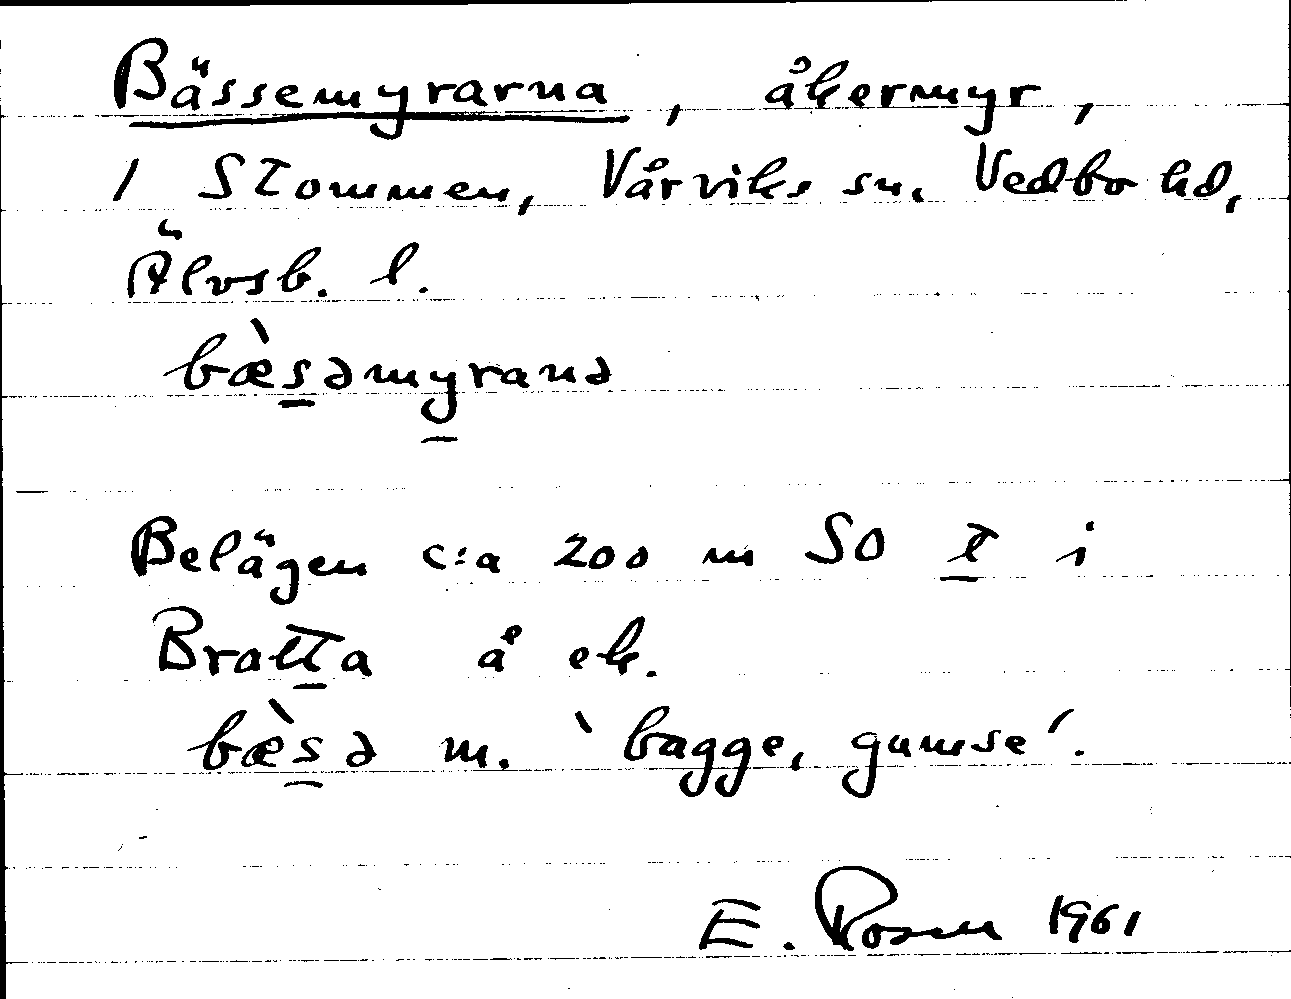 Bässemyrarna, åkermyr,
/ Stommen, Vårviks sn. Vedbo hd,
Älvsb. l.
bæ̀s̲əmy̲ranə
Belägen c:a 200 m SO t̲ i
Brat̲ta å ek.
bæ̀s̲ə m. 'bagge, gumse'.
E. Rosen 1961